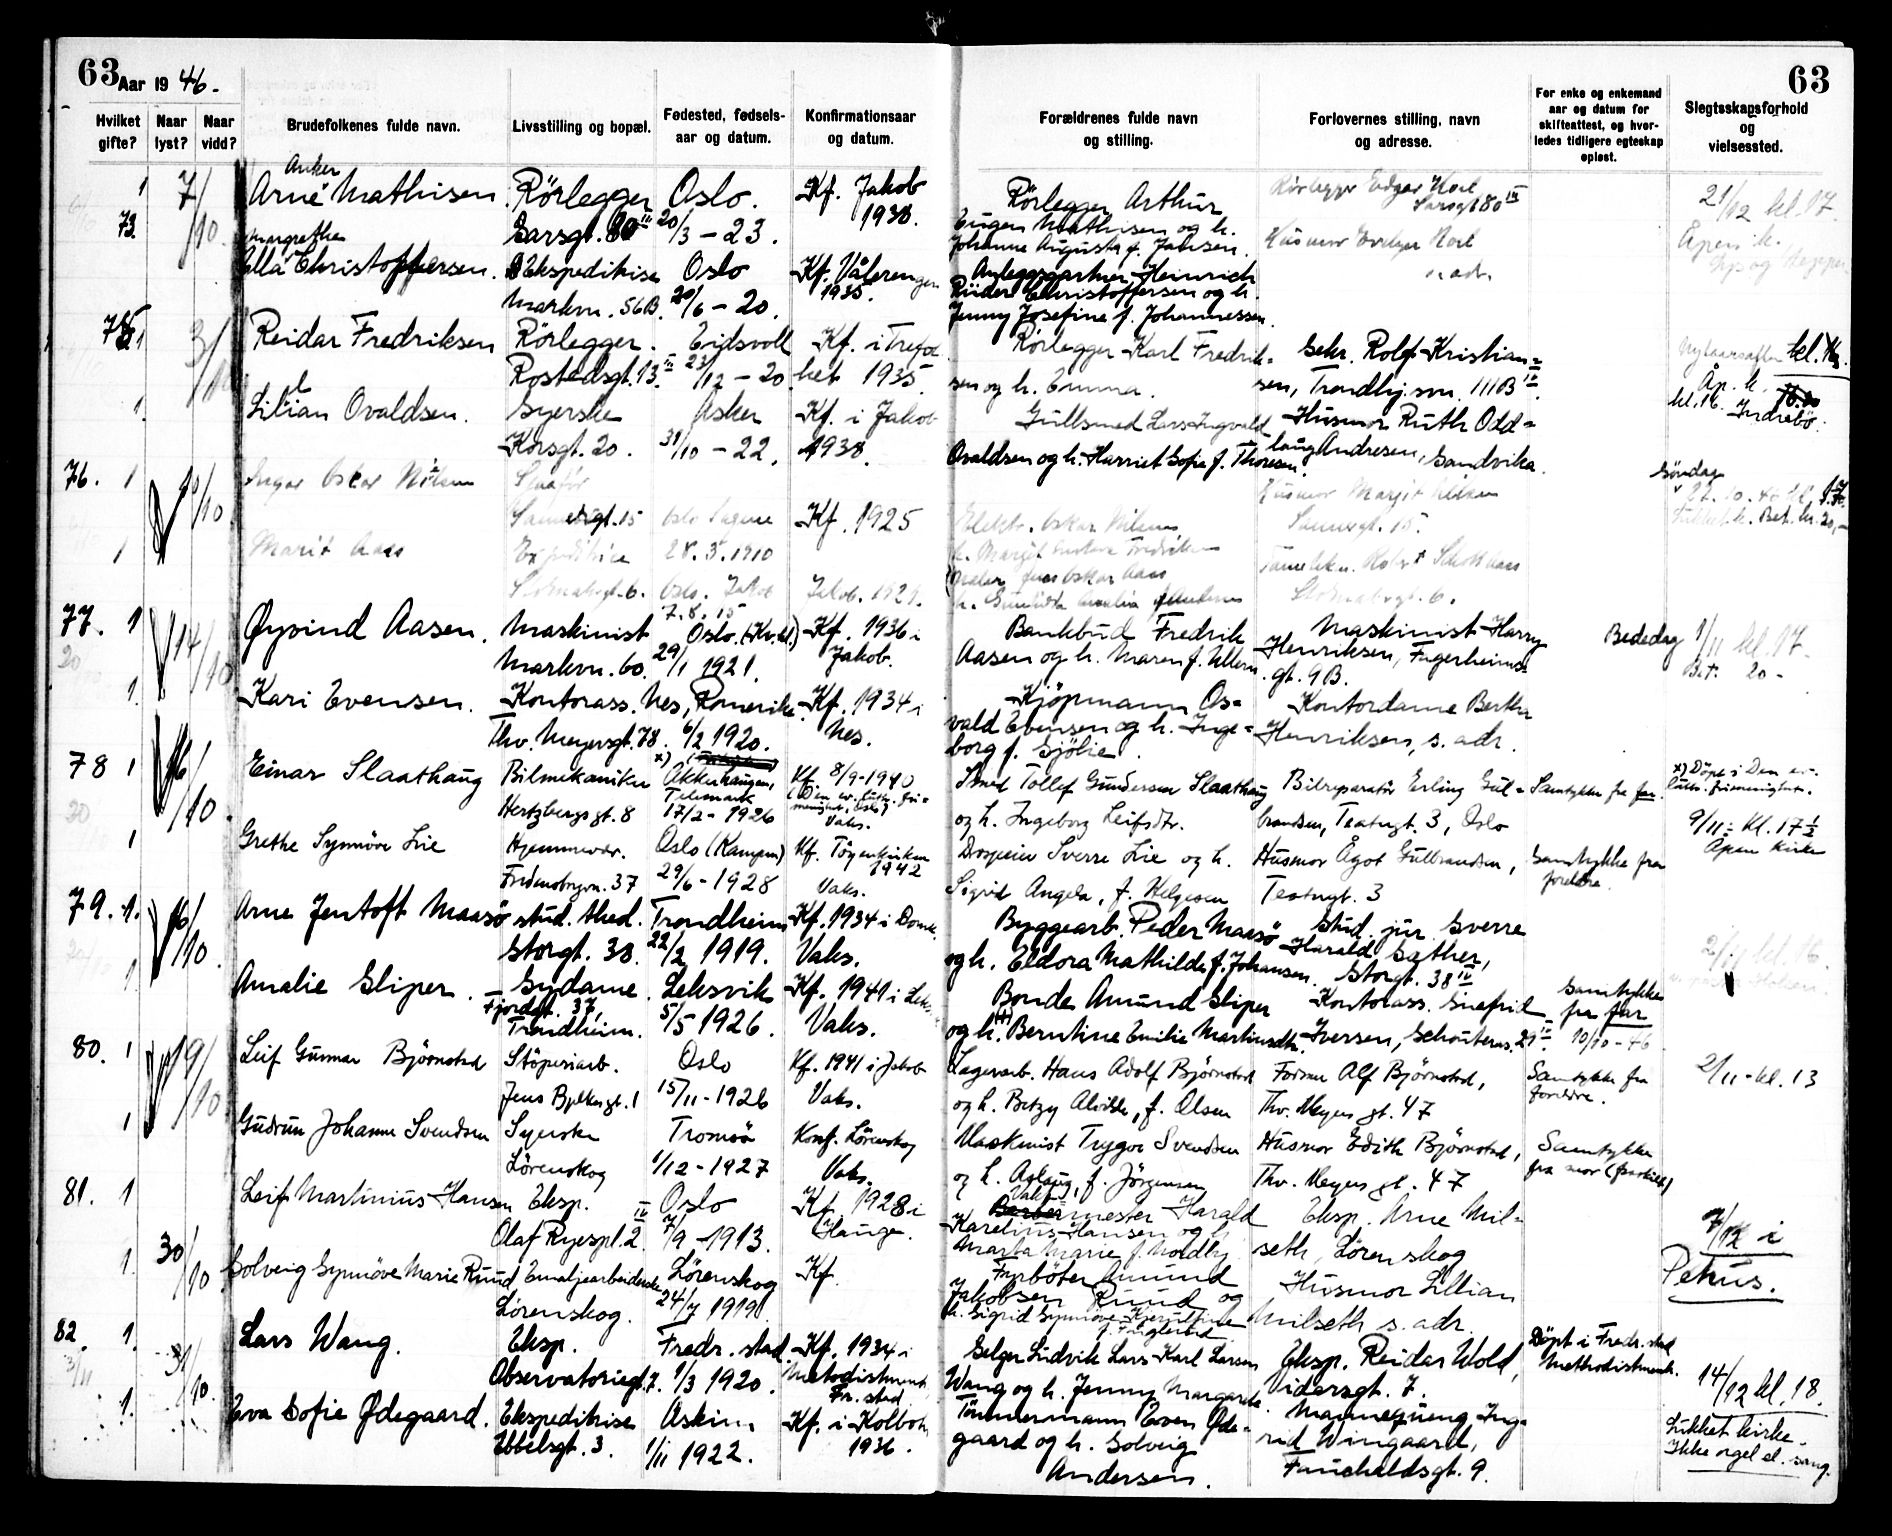 63 Aar 1946.
63
Hvilket gifte?
Naar lyst?
Naar vidd?
Brudefolkenes fulde navn.
Livsstilling og bopæl.
Fødested, fødsels-
aar og datum.
Konfirmationsaar
og datum.
Forældrenes fulde navn
og stilling.
Forlovernes stilling, navn
og adresse.
For enke og enkemand
aar og datum for
skifteattest, og hvor-
ledes tidligere egteskap
opløst.
Slegtsskapsforhold
og
vielsessted.
Anker
1 7/10 Arne Mathisen Rörlegger Oslo. Kf. Jakob
Sarsgt. 80 IV 20/3 - 23. 1938.
Rörlegger Arthur
Eugen Mathisen og h.
Johanne Augusta f. Jansen.
Rörlegger Edgar
Sarsgt 80 IV
21/12 kl. 17.
Åpen k.
73.
Margrethe
Ella Christoffersen. Ekspeditrise Oslo Kf. Vålerengen
Markvn. 56B. 20/6 - 20. 1935.
Anleggsgartner Heinrich
Rüder Christoffersen og h.
Jenny Josefine f. Johannessen.
Husmor Evelyn
s. adr.
75 1 3/10 Reidar Fredriksen Rörlegger. Eidsvoll Kf. i Trefol
Rostedsgt. 13 III 23/12 - 20. het 1935
Rörlegger Karl Fredrik-
sen og h. Emma.
Sekr. Rolf Kristian=
sen, Trondhj.svn. 111B IV.
Nyttaarsaften kl.
Åp. k.
kl. 16. Indrebö.
1 Lillian Ovaldsen. Syerske Asker Kf. i Jakob
Korsgt. 20. 31/10 - 22. 1938.
Gullsmed Lars Ingvald
Ovaldsen og h. Harriet Sofie f. Thoresen.
Husmor Ruth Odd=
laug Andresen, Sandvika.
76. 1 10/10 Ingar Oskar Nilsen
Sannergt. 15 Oslo Sagene Kf. 1925
28. 3. 1910
Elektr. Oskar Nilsen
h. Margit Fredriksen
Husmor Margit Nilsen
Sannergt. 15.
Söndag
27. 10. 46 kl.
Lukket k. Bet. kr. 20,-
1 Marit Aass Expeditrice
6. Oslo. Jakob Jakob. 1929.
7. 8. 15
Jens Oskar Aass
h. Amalia
Robert Schott Aass
6.
77. 1 14/10 Øyvind Aasen. Maskinist Oslo. Kf. 1936 i
Markvn. 60. 29/1 1921. Jakob.
Bankbud Fredrik
Aasen og h. Maren f. Ullern.
Maskinist Harry
Henriksen, Fagerheims-
gt. 9B.
Bededag 1/11 kl. 17.
Bet. 20 -
1 Kari Evensen. Kontorass. Nes, Romerike. Kf. 1934 i
Thv. Meyersgt. 78. 6/2 1920. Nes.
Kjöpmann Os=
vald Evensen og h. Inge=
borg f. Gjölie.
Kontordame Berthe
Henriksen, s. adr.
78 1 16/10 Einar Slaathaug Bilmekaniker x) Akkerhaugen, Kf. 8/9-1940
Telemark (Den ev. luth. fri=
Hertzbergs gt. 8 17/2 - 1926 menighet, Oslo)
Vaks.
Smed Tollef Gundersen Slaathaug
og h. Ingeborg Leifsdtr.
Bilreparatör Erling Gul=
brandsen, Teatergt. 3, Oslo
Samtykke fra far.
x) Döpt i Den ev.
luth. frimenighet.
9/11 - Kl. 17 1/2
Åpen kirke
1 Grethe Synnöve Lie Hjemmevær. Oslo (Kampen) Kf. Töyenkirken
Fredensborgvn. 37 29/6 - 1928 1942
Vaks.
Drosjeeier Sverre Lie og h.
Sigrid Angela, f. Helgesen
Husmor Ågot Gulbrandsen,
Teatergt. 3
Samtykke fra
foreldre.
79. 1. 16/10 Arne Jentoft Maasö stud. theol. Trondheim Kf. 1934 i Domk.
Storgt. 38. 22/2 1919. Vaks.
Byggearb. Peder Maasö
og h. Eldora Mathilde f. Johansen.
Stud. jur Sverre
Harald Sæther,
Storgt. 38 IV
kl. 16.
1 Amalie Sliper. Sydame. Leksvik Kf. 1941 i Leks
Fjordgt. 37, 5/5 1926. Vaks.
Trondheim.
Bonde Amund Sliper
og h. (+) Berntine Emilie Martinsdtr.
Kontorass. Snefrid
Iversen, Schouteras. 29 IV.
Samtykke
fra far
10/10 - 46
80. 1 19/10 Leif Gunnar Björnstad Stöperiarb. Oslo Kf. 1941 i Jakob
Jens Bjelkes gt. 1 15/11 - 1926 Vaks.
Lagerarb. Hans Adolf Björnstad
og h. Betzy Alvilde, f. Olsen
Former Alf Björnstad,
Thv. Meyers gt. 47
Samtykke fra
foreldre.
2/11 - kl. 13
1 Gudrun Johanne Svendsen Syerske Tromsö Konf. Lörenskog
Lörenskog 1/12 - 1927 Vaks.
Maskinist Trygve Svendsen
og h. Aslaug, f. Jörgensen
Husmor Edith Björnstad,
Thv. Meyers gt. 47
Samtykke
fra mor (fraskilt)
81. 1 Leif Martinius Hansen Eksp. Oslo Kf. 1928 i
Olaf Ryespl. 2 IV. 7/9 - 1913. Hauge.
Vaktmester Harald
Karelius Hansen og h.
Marta Marie f. Nordby
Eksp. Arne Mil=
seth, Lörenskog
7/12 i
Petrus.
30/10
1. Solveig Synnöve Marie Ruud Emaljearbeiderske Lörenskog Kf.
Lörenskog. 24/7 1919.
Fyrböter Amund
Jakobsen Ruud og
h. Sigrid Synnöve
Husmor Lillian
Milseth s. adr.
82. 1. 31/10. Lars Wang. Eksp. Fredr.stad Kf. 1934 i
Observatoriegt. 7. 1/3 1920. Metodistmenh.
Fr.stad
Selger Ludvik Lars Karl Larsen
Wang og h. Jenny Margarete.
Eksp. Reidar Wold,
Vidarsgt. 7.
Döpt i Fredr.stad
Methodistmenh.
14/12 kl. 18.
Lukket kirke.
Ikke orgel el. sang.
1. Eva Sofie Ødegaard. Ekspeditrise Askim Kf. i Kolbotn
Ebbelsgt. 3. 1/11 1922. 1936.
Tömmermann Even Øde-
gaard og h. Solveig
Andersen.
Mannequeng Ing-
rid Wingaard,
Fauchaldsgt. 9.